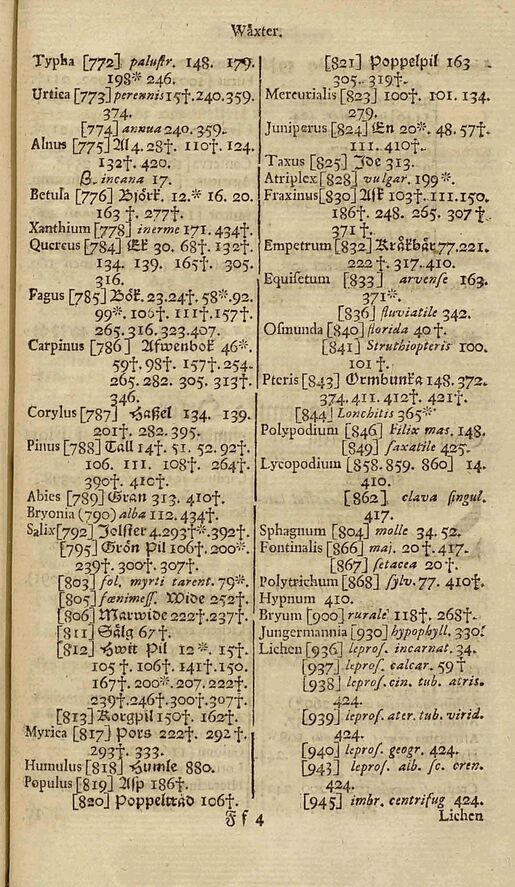 Wåxter.
Typha [772] palustr. 148. 179.
198* 246.
Urtica [773] perennis 15†. 240. 359.
374.
[774] annua 240. 359.
Alnus [775] Al 4. 28†. 110†. 124.
132†. 420.
β. incana 17.
Betula [776] Björk. 12.* 16. 20.
163 †. 277†.
Xanthium [778] inerme 171. 434†.
Quercus [784] Ek 30. 68†. 132†.
134. 139. 165†. 305.
316.
Fagus [785] Bok. 23. 24†. 58*. 92.
99*. 106†. 111†. 157†.
265. 316. 323. 407.
Carpinus [786] Afwenbok 46*.
59†. 98†. 157†. 254.
265. 282. 305. 313†.
346.
Corylus [787] Haßel 134. 139.
201†. 282. 395.
Pinus [788] Tall 14†. 51. 52. 92†.
106. 111. 108†. 264†.
390†. 410†.
Abies [789] Gran 313. 410†.
Bryonia (790) alba 112. 434†.
Salix [792] Jolster 4. 293†*. 392†.
[795] Grön Pil 106†. 200*.
239†. 300†. 307†.
[803] fol. myrti tarent. 79*.
[805] fœnimess. Wide 252†.
[806] Marwide 222†. 237†.
[811] Sälg 67†.
[812] Hwit Pil 12*. 15†.
105†. 106†. 141†. 150.
167†. 200*. 207. 222†.
239†. 246†. 300†. 307†.
[813] Korgpil 150†. 162†.
Myrica [817] Pors 222†. 292†.
293†. 333.
Humulus [818] Humle 880.
Populus [819] Asp 186†.
[820] Poppelträd 106†.
[821] Poppelpil 163
305. 319†.
Mercurialis [823] 100†. 101. 134.
279.
Juniperus [824] En 20*. 48. 57†.
111. 410†.
Taxus [825] Ide 313.
Atriplex [828] vulgar. 199*.
Fraxinus [830] Ask 103†. 111. 150.
186†. 248. 265. 307†
371†.
Empetrum [832] Kråkbär 77. 221.
222†. 317. 410.
Equisetum [833] arvense 163.
371*.
[836] fluviatile 342.
Osmunda [840] florida 40†.
[841] Struthiopteris 100.
101†.
Pteris [843] Ormbunka 148. 372.
374. 411. 412†. 421†.
[844] Lonchitis 365*
Polypodium [846] Filix mas. 148.
[849] saxatile 425.
Lycopodium [858. 859. 860] 14.
410.
[862] clava singul.
417.
Sphagnum [804] molle 34. 52.
Fontinalis [866] maj. 20†. 417.
[867] setacea 20†.
Polytrichum [868] sylv. 77. 410†.
Hypnum 410.
Bryum [900] rurale 118†. 268†.
Jungermannia [930] hypophyll. 330
Lichen [936] lepros. incarnat. 34.
[937] lepros. calcar. 59†
[938] lepros. cin. tub. atris.
424.
[939] lepros. ater. tub. virid.
424.
[940] lepros. geogr. 424.
[943] lepros. alb. sc. cren.
424.
[945] imbr. centrifug 424.
F f 4
Lichen